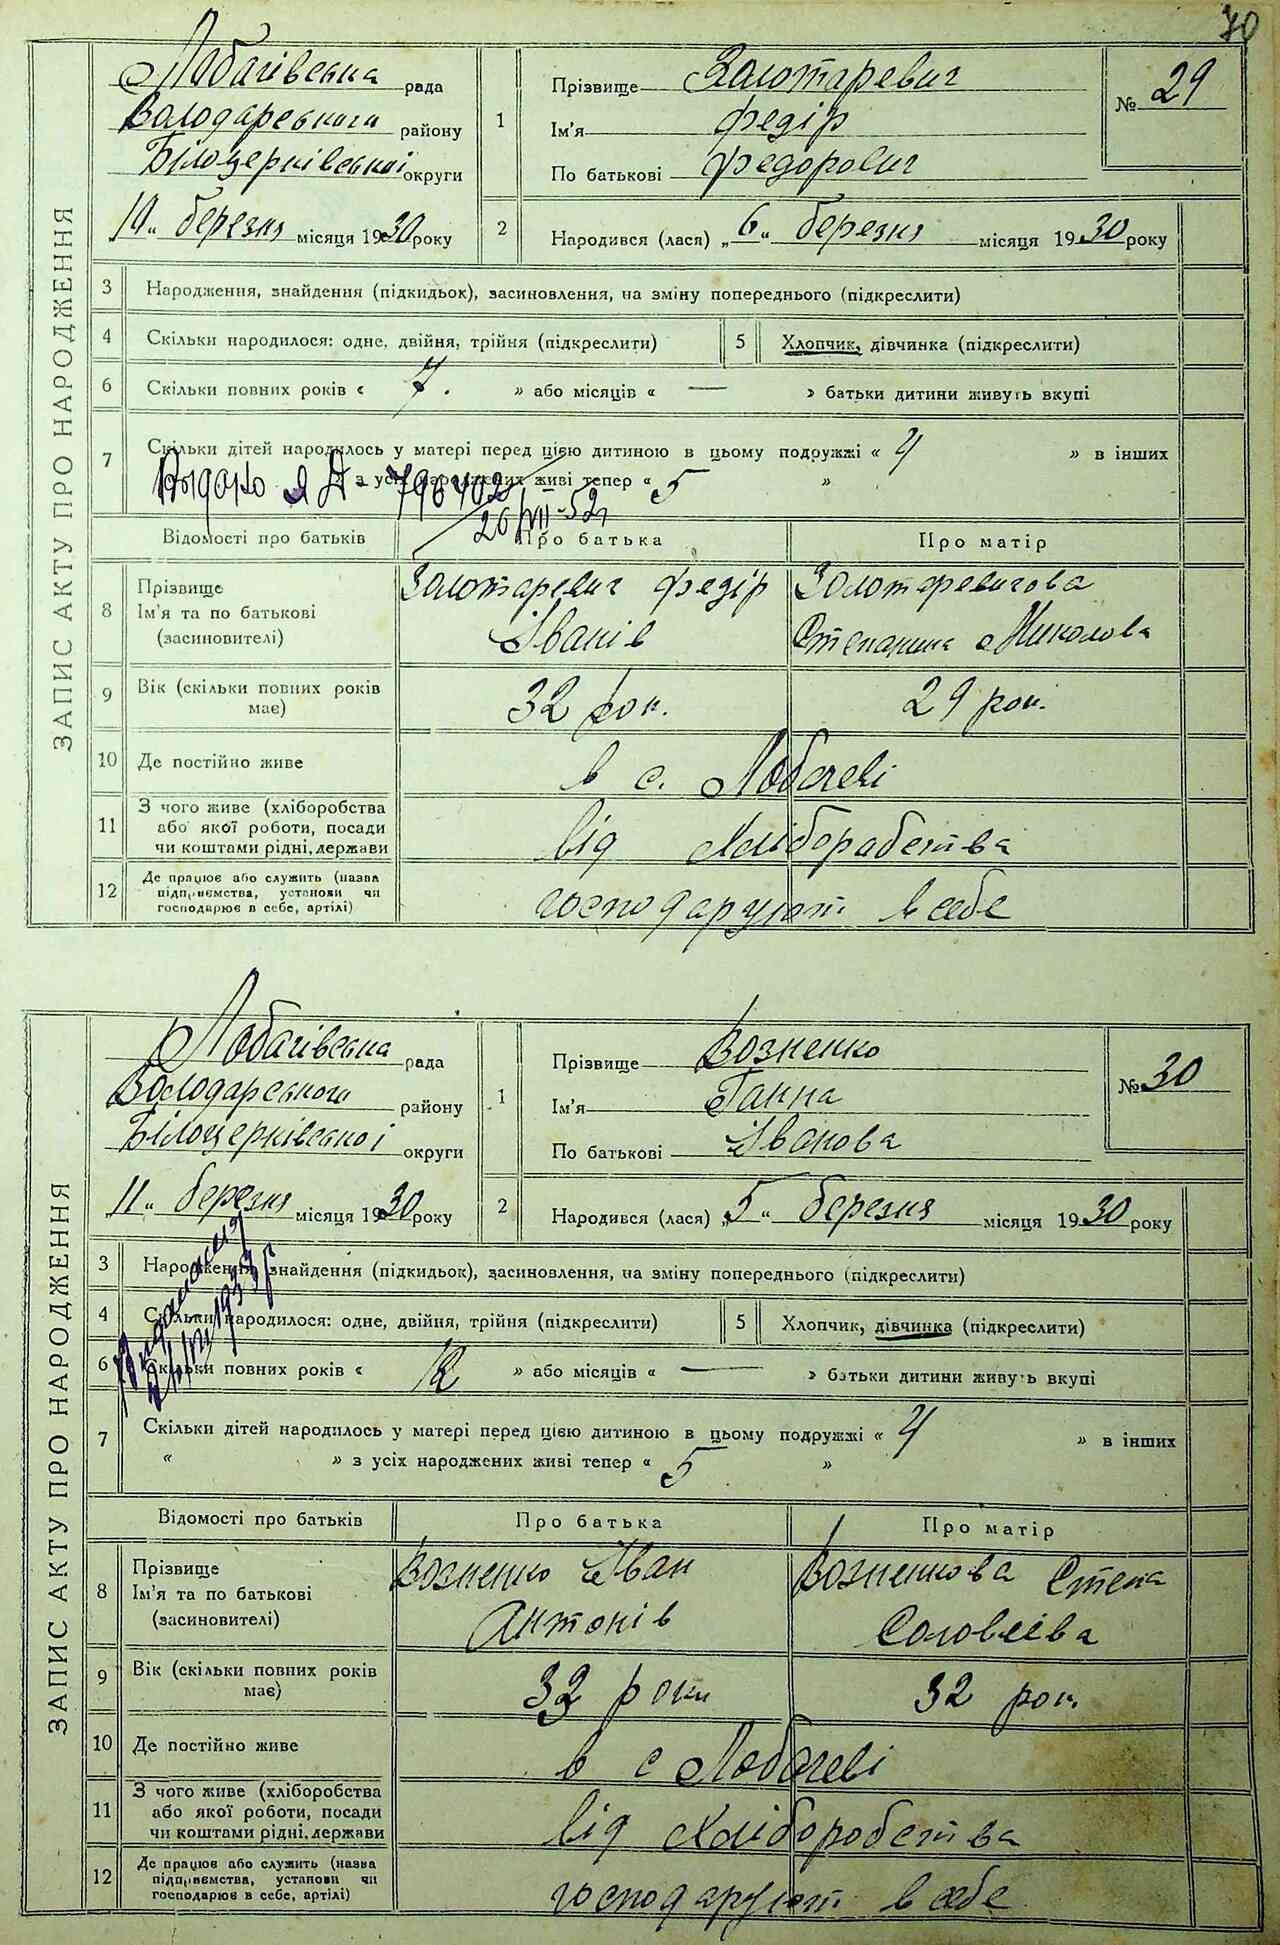 70
ЗАПИС АКТУ ПРО НАРОДЖЕННЯ
Лобачівська рада
Володарського району
Білоцерківської округи
"10" березня місяця 1930 року
1 Прізвище Золотаревич
Ім'я Федір
По батькові Федорович
№ 29
2 Народився (лася) "6" березня місяця 1930 року
3 Народження, знайдення (підкидьок), засиновлення, на зміну попереднього (підкреслити)
4 Скільки народилося: одне, двійня, трійня (підкреслити) 5 Хлопчик, дівчинка (підкреслити)
6 Скільки повних років « 7. » або місяців « — » батьки дитини живуть вкупі
7 Скільки дітей народилось у матері перед цією дитиною в цьому подружжі « 4 » в інших
з усіх народжених живі тепер « 5 »
Выдано я Д - 796402
26/VII-52
Відомості про батьків Про батька Про матір
8 Прізвище Ім'я та по батькові (засиновителі)
Золотаревич Федір Іванів
Золотаревичова Степанида Миколова
9 Вік (скільки повних років має) 32 рок. 29 рок.
10 Де постійно живе в с. Лобачеві
11 З чого живе (хліборобства або якої роботи, посади чи коштами рідні, держави від хліборобства
12 Де працює або служить (назва підприємства, установи чи господарює в себе, артілі) господарують в себе
ЗАПИС АКТУ ПРО НАРОДЖЕННЯ
Лобачівська рада
Володарського району
Білоцерківської округи
"11" березня місяця 1930 року
1 Прізвище Возненко
Ім'я Ганна
По батькові Іванова
№ 30
2 Народився (лася) "5" березня місяця 1930 року
3 Народження, знайдення (підкидьок), засиновлення, на зміну попереднього (підкреслити)
4 Скільки народилося: одне, двійня, трійня (підкреслити) 5 Хлопчик, дівчинка (підкреслити)
6 Скільки повних років « 12 » або місяців « — » батьки дитини живуть вкупі
7 Скільки дітей народилось у матері перед цією дитиною в цьому подружжі « 4 » в інших
« » з усіх народжених живі тепер « 5 »
Відомості про батьків Про батька Про матір
8 Прізвище Ім'я та по батькові (засиновителі)
Возненко Іван Антонів
Возненкова Степа Соловеєва
9 Вік (скільки повних років має) 32 роки 32 рок.
10 Де постійно живе в с Лобачеві
11 З чого живе (хліборобства або якої роботи, посади чи коштами рідні, держави від хліборобства
12 Де працює або служить (назва підприємства, установи чи господарює в себе, артілі) господарують в себе